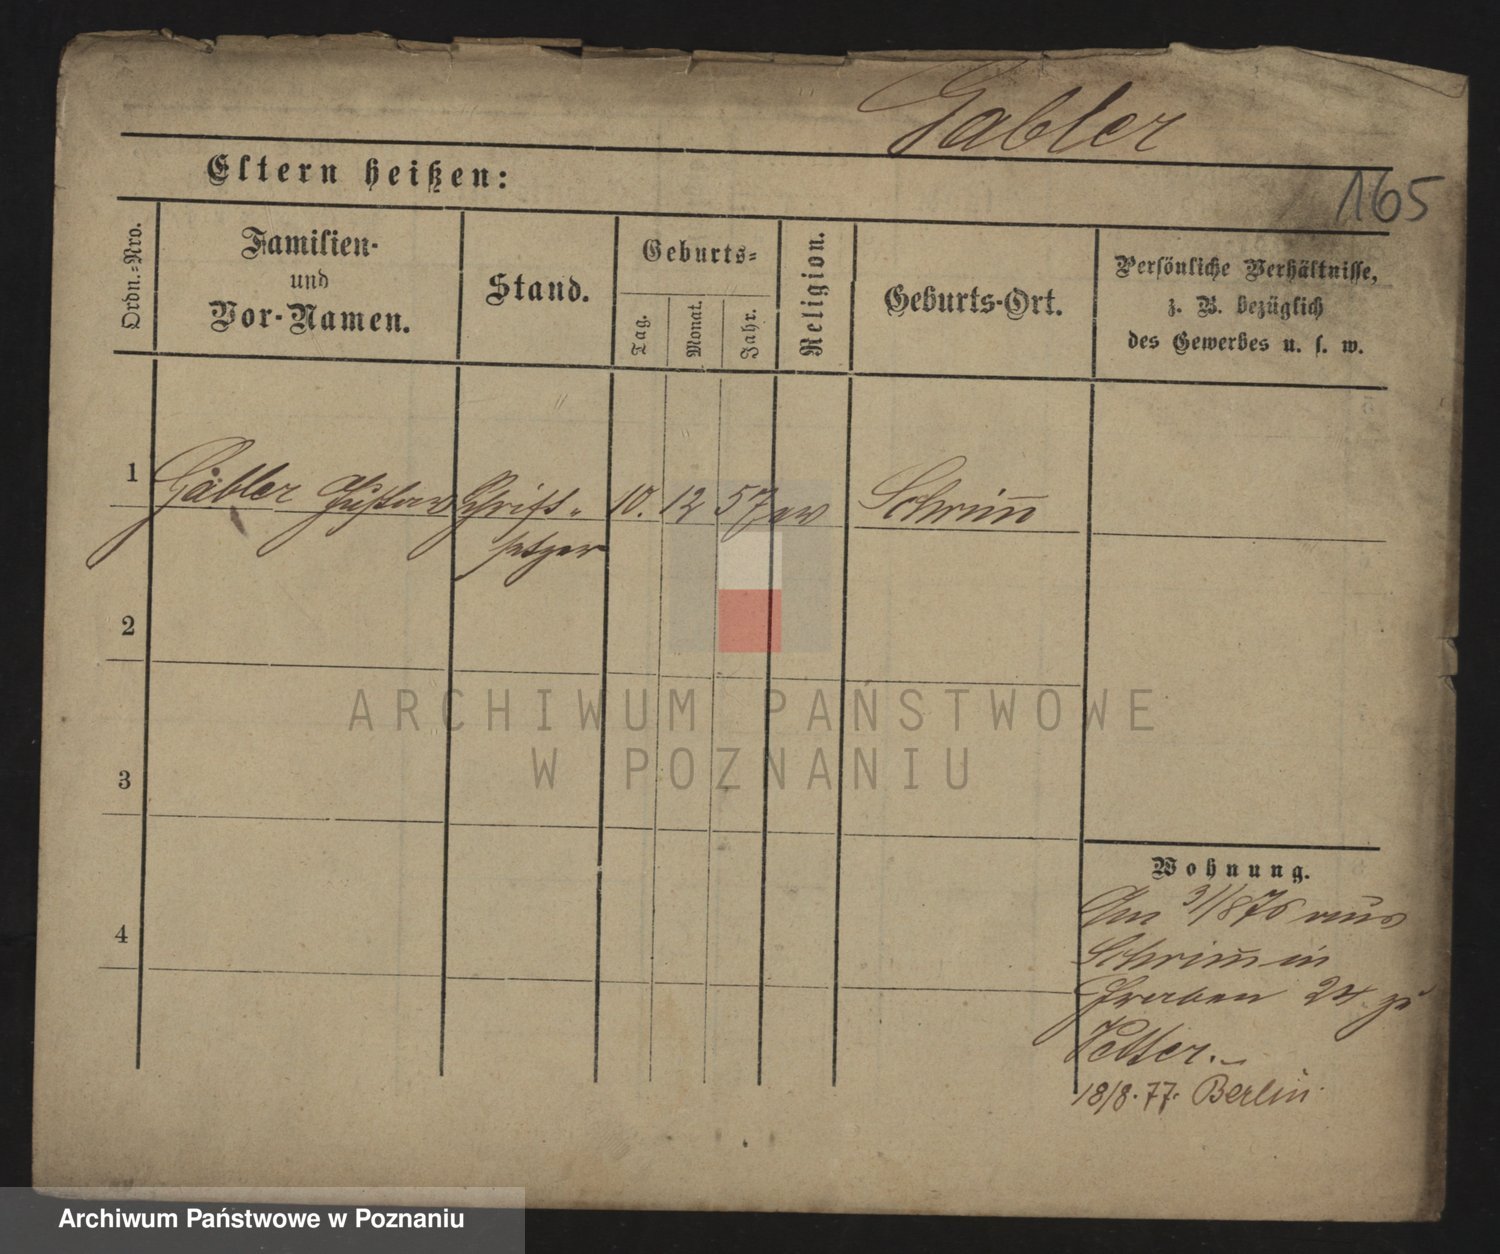 Gabler
165
Eltern heißen:
Ordn.-Nro.
Familien-
und
Vor-Namen.
Stand.
Geburts-
Tag.
Monat.
Jahr.
Religion.
Geburts-Ort.
Persönliche Verhältnisse,
z. B. bezüglich
des Gewerbes u. s. w.
1
Gäbler Gustav Schrift- 10. 12 57 ev Schrim̄
setzer
2
3
4
Wohnung.
Am 3/1876 aus
Schrim̄ in
Graben 24 zu
18/8.77. Berlin.
ARCHIWUM PAŃSTWOWE
W POZNANIU
Archiwum Państwowe w Poznaniu